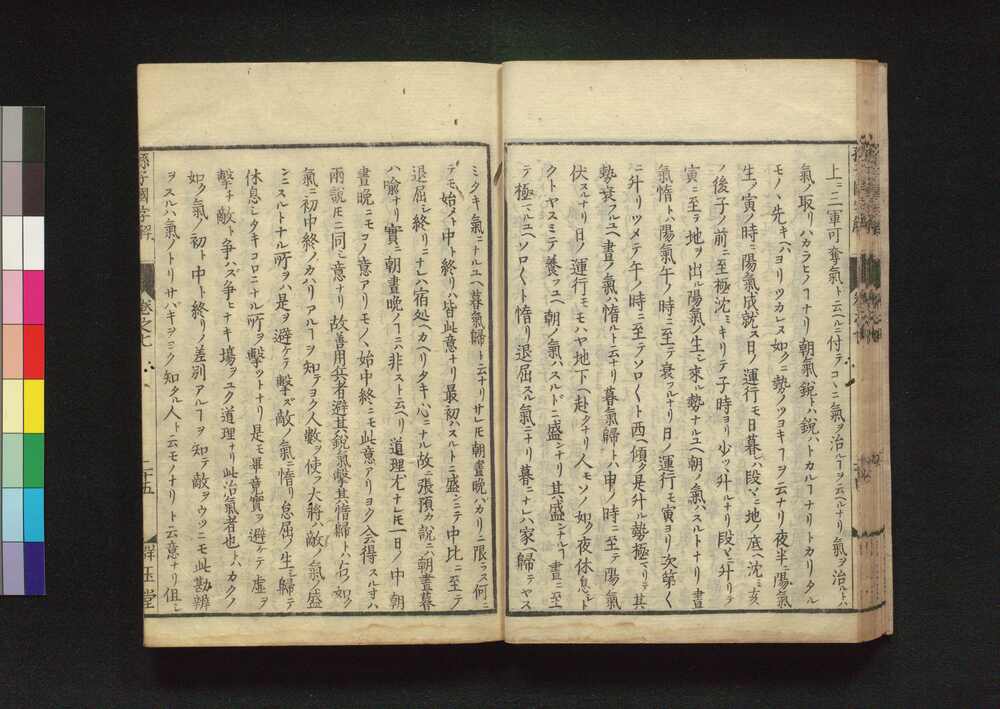 上ニ三軍可奪氣ト云ヘルニ付テコヽニ氣ヲ治ルヿヲ云ヘルナリ氣ヲ治ルトハ
氣ノ取リハカラヒノヿナリ朝氣銳トハ銳ハトカルヿナリトカリタル
モノヽ先キハヨリツカレヌ如クニ勢ノツヨキヿヲ云ナリ夜半ニ陽氣
生ノ寅ノ時ニ陽氣成就ス日ノ運行モ日暮レハ段々ニ地ノ底ヘ沈ミ亥
ノ後子ノ前ニ至極沈ミキリテ子時ヨリ少ツヽ升ルナリ段々ニ升リテ
寅ニ至テ地ヲ出ル陽氣ノ生シ來ル勢ナルユヘ朝ノ氣ハスルトナリ晝
氣惰トハ陽氣午ノ時ニ至テ衰フルナリ日ノ運行モ寅ヨリ次第〱
ニ升リツメテ午ノ時ニ至テソロ〱ト西ヘ傾ク是升ル勢極マリテ其
勢衰フルユヘ晝ノ氣ハ惰ルト云ナリ暮氣歸トハ申ノ時ニ至テ陽氣
伏スナリ日ノ運行モモハヤ地下ヘ赴クナリ人モソノ如ク夜休息シ
クトヤスミテ養フユヘ朝ノ氣ハスルドニ盛ンナリ其盛ンナルヿ晝ニ至
テ極マルユヘソロ〱ト惰リ退屈スル氣ニナリ暮ニナレハ家ヘ歸テヤス
ミタキ氣ニナルユヘ暮氣歸ト云ナリサレ𪜈朝晝晚ハカリニ限ラス何ニ
テモ始メト中ト終リハ皆此意ナリ最初ハスルトニ盛ンニテ中比ニ至テ
退屈シ終リニナレハ宿処ヘカヘリタキ心ニナル故ニ張預カ說ニハ朝晝暮
ハ喩ナリ實ニ朝晝晚ノヿニハ非スト云ヘリ道理尤ナレ𪜈一日ノ中朝
晝晚ニモコノ意アリモノヽ始中終ニモ此意アリヨク入會得スルオハ
兩說𪜈ニ同シ意ナリ故善用兵者避其銳氣擊其惰歸トハ右ノ如ク
氣ニ初中終ノカハリアルヿヲ知テヨク人數ヲ使フ大將ハ敵ノ氣ノ盛
ンニスルトナル所ヲハ是ヲ避ケテ擊ズ敵ノ氣ニ惰リ怠屈ノ生シ歸テ
休息シタキコロニナル所ヲ擊ツトナリ是モ畢竟實ヲ避ケテ虛ヲ
擊チ敵ト爭ハズ爭ヒナキ塲ヲユク道理ナリ此治氣者也トハカクノ
如ク氣ノ初ト中ト終リノ差別アルヿヲ知テ敵ヲウツニモ此勘辨
ヲスルハ氣ノトリサハキヲヨク知タル人ト云モノナリト云意ナリ但シ
孫子國字解 卷之七 二十五 群玉堂